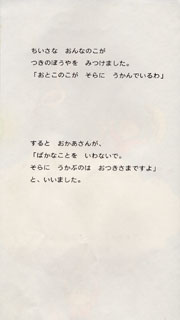 ちいさな　おんなのこが
つきのぼうやを　みつけました。
「おとこのこが　そらに　うかんでいるわ」
すると　おかあさんが、
「ばかなことを　いわないで。
そらに　うかぶのは　おつきさまですよ」
と、いいました。